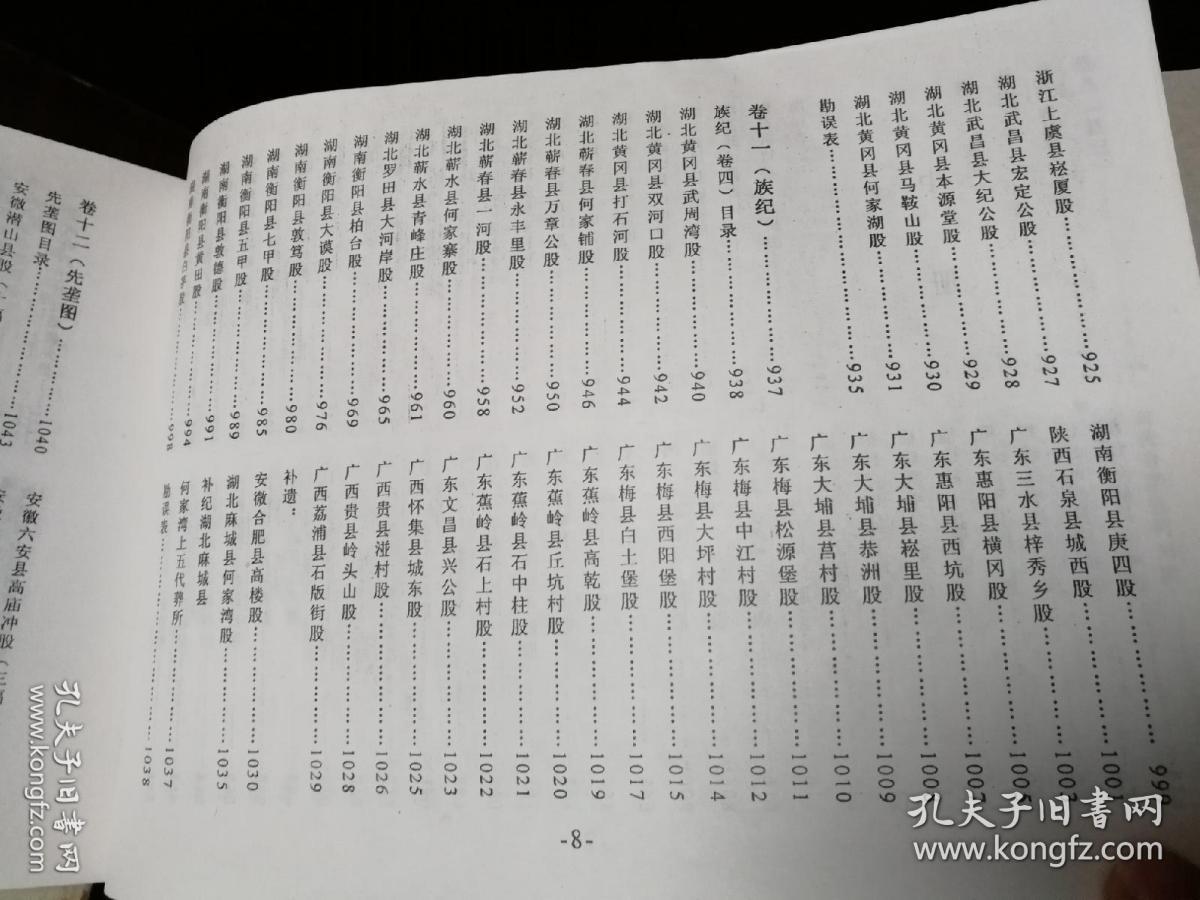 浙江上虞县崧厦股……925
湖北武昌县宏定公股……927
湖北武昌县大纪公股……928
湖北黄冈县本源堂股……929
湖北黄冈县马鞍山股……930
湖北黄冈县何家湖股……931
勘误表……935
卷十一（族纪）……937
族纪（卷四）目录……938
湖北黄冈县武周湾股……940
湖北黄冈县双河口股……942
湖北黄冈县打石河股……944
湖北蕲春县何家铺股……946
湖北蕲春县万章公股……950
湖北蕲春县永丰里股……952
湖北蕲春县一河股……958
湖北蕲水县何家寨股……960
湖北蕲水县青峰庄股……961
湖北罗田县大河岸股……965
湖南衡阳县柏台股……969
湖南衡阳县大谟股……976
湖南衡阳县敦笃股……980
湖南衡阳县七甲股……985
湖南衡阳县五甲股……989
湖南衡阳县敦德股……991
湖南衡阳县黄田股……994
……998
湖南衡阳县庚四股……999
陕西石泉县城西股……1001
广东三水县梓秀乡股……
广东惠阳县横冈股……
广东惠阳县西坑股……
广东大埔县崧里股……
广东大埔县恭洲股……1009
广东大埔县莒村股……1010
广东梅县松源堡股……1011
广东梅县中江村股……1012
广东梅县大坪村股……1014
广东梅县西阳堡股……1015
广东梅县白土堡股……1017
广东蕉岭县高乾股……1019
广东蕉岭县丘坑村股……1020
广东蕉岭县石中柱股……1021
广东蕉岭县石上村股……1022
广东文昌县兴公股……1023
广西怀集县城东股……1025
广西贵县湴村股……1026
广西贵县岭头山股……1028
广西荔浦县石版街股……1029
补遗：
安徽合肥县高楼股……1030
湖北麻城县何家湾股……1035
补纪湖北麻城县
何家湾上五代骅所……1037
勘误表……1038
-8-
卷十二（先垄图）……1040
先垄图目录……
安徽潜山县股……1043
安徽六安县高庙冲股（三
孔夫子旧书网
kongfz.com
孔夫子旧书网
www.kongfz.com